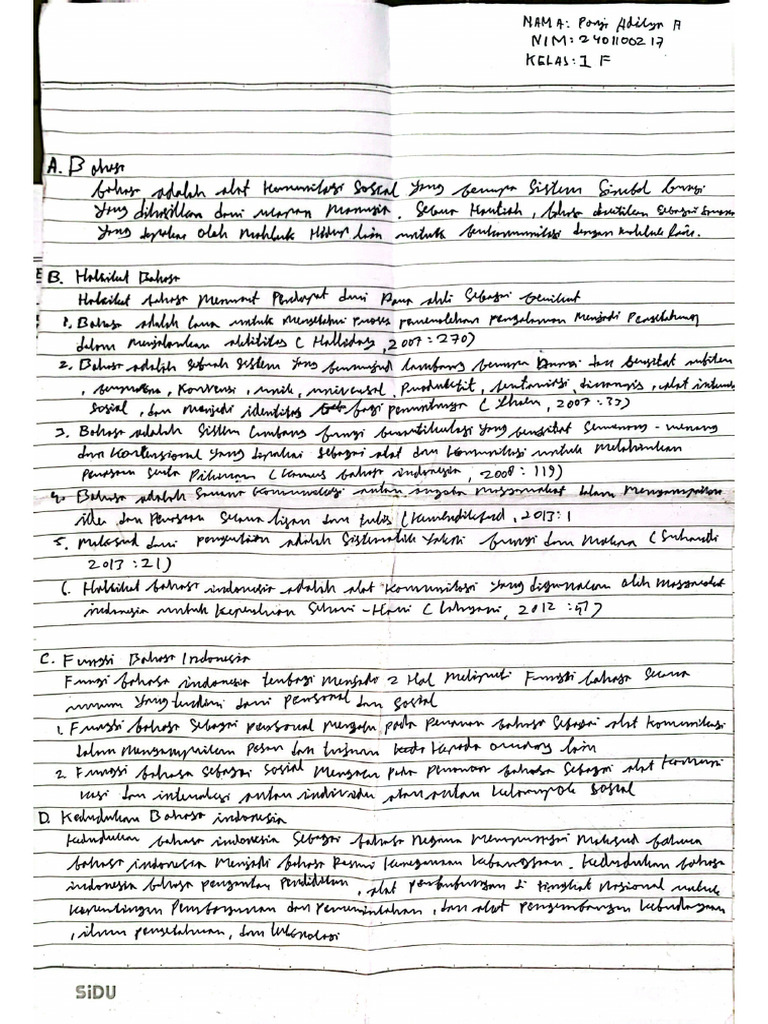 NAMA: Panji Aditya A
NIM: 2401100217
KELAS: 1 F
A. Bahasa
bahasa adalah alat komunikasi sosial yang berupa sistem simbol bunyi
yang dihasilkan dari ucapan manusia. Secara harfiah, bahasa diartikan sebagai sarana
yang dipakai oleh Makhluk Hidup lain untuk berkomunikasi dengan makhluk lain.
B. Hakikat Bahasa
Hakikat bahasa menurut Pendapat dari Para ahli sebagai berikut
1. Bahasa adalah cara untuk mengetahui proses pemerolehan pengalaman menjadi Pengetahuan
dalam menjalankan aktifitas (Halliday, 2007:270)
2. Bahasa adalah sebuah sistem yang berwujud lambang berupa bunyi dan bersifat arbitrer
, bermakna, Konvensi, unik, universal, Produktif, bervariasi, dinamis, alat interaksi
sosial, dan menjadi identitas bagi penuturnya (Chaer, 2007:33)
3. Bahasa adalah Sistem Lambang bunyi berartikulasi yang bersifat Sewenang-wenang
dan Konvensional yang dipakai sebagai alat dan komunikasi untuk Melahirkan
perasaan serta Pikiran (Kamus bahasa indonesia, 2008:119)
4. Bahasa adalah Sarana Komunikasi antar anggota masyarakat dalam menyampaikan
ide dan Perasaan Secara lisan dan tulis (Kemendikbud, 2013:1
5. Maksud dari pengertian adalah Sistematik yakni bunyi dan Makna (Suhardi
2013:21)
6. Hakikat bahasa indonesia adalah alat Komunikasi yang digunakan oleh masyarakat
indonesia untuk Keperluan Sehari-Hari (, 2012:97)
C. Fungsi Bahasa Indonesia
Fungsi bahasa indonesia terbagi menjadi 2 Hal meliputi Fungsi bahasa secara
umum yang terdiri dari personal dan sosial
1. Fungsi bahasa sebagai personal mengacu pada peranan bahasa sebagai alat komunikasi
dalam menyampaikan pesan dan tujuan kepada orang lain
2. Fungsi bahasa sebagai sosial mengacu pada peranan bahasa sebagai alat komuni
kasi dan interaksi antar individu atau antar kelompok sosial
D. Kedudukan Bahasa indonesia
Kedudukan bahasa indonesia sebagai bahasa Negara mempunyai Maksud bahwa
bahasa indonesia menjadi bahasa Resmi Kenegaraan Kebangsaan. Kedudukan bahasa
indonesia bahasa pengantar pendidikan, alat perhubungan di tingkat Nasional untuk
Kepentingan Pembangunan dan Pemerintahan, dan alat pengembangan kebudayaan
, ilmu pengetahuan, dan teknologi
SiDU